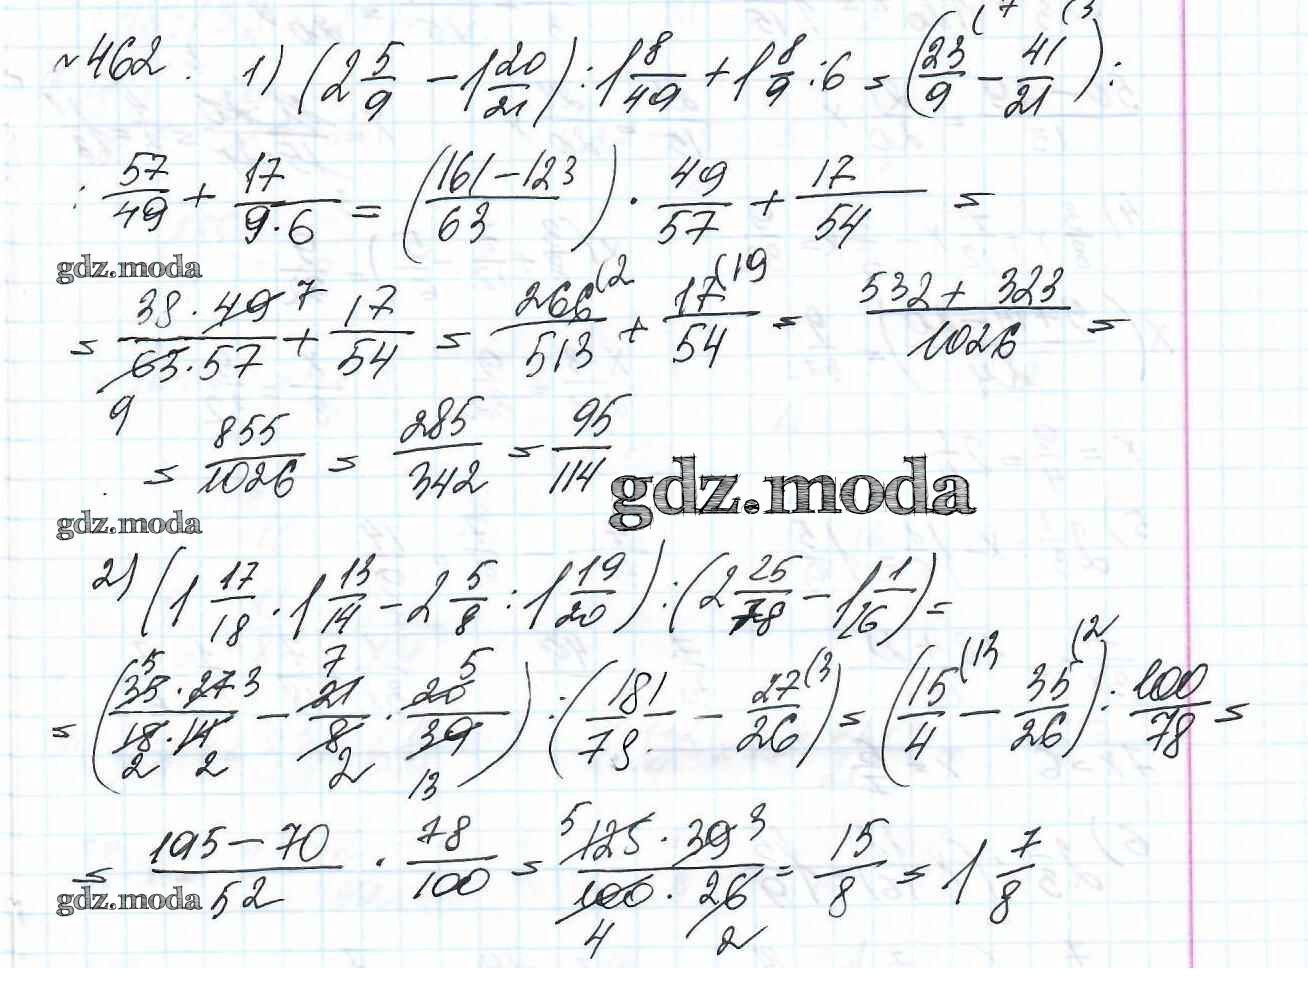 №462. 1) (2 5/9 − 1 20/21) : 1 8/49 + 1 8/9 : 6 = (23/9 (7 − 41/21 (3) :
: 57/49 + 17/(9·6) = ((161−123)/63) · 49/57 + 17/54 =
gdz.moda
= (38·49 7)/(63·57 9) + 17/54 = 266/513 (2 + 17/54 (19 = (532+323)/1026 =
= 855/1026 = 285/342 = 95/114
gdz.moda
gdz.moda
2) (1 17/18 · 1 13/14 − 2 5/8 : 1 19/20) : (2 25/78 − 1 1/26) =
= ((35 5 · 27 3)/(18 2 · 14 2) − 21 7/8 2 · 20 5/39 13) : (181/78 − 27/26 (3) = (15/4 (13 − 35/26 (2) : 100/78 =
= (195−70)/52 · 78/100 = (5 125 · 39 3)/(100 4 · 26 2) = 15/8 = 1 7/8
gdz.moda